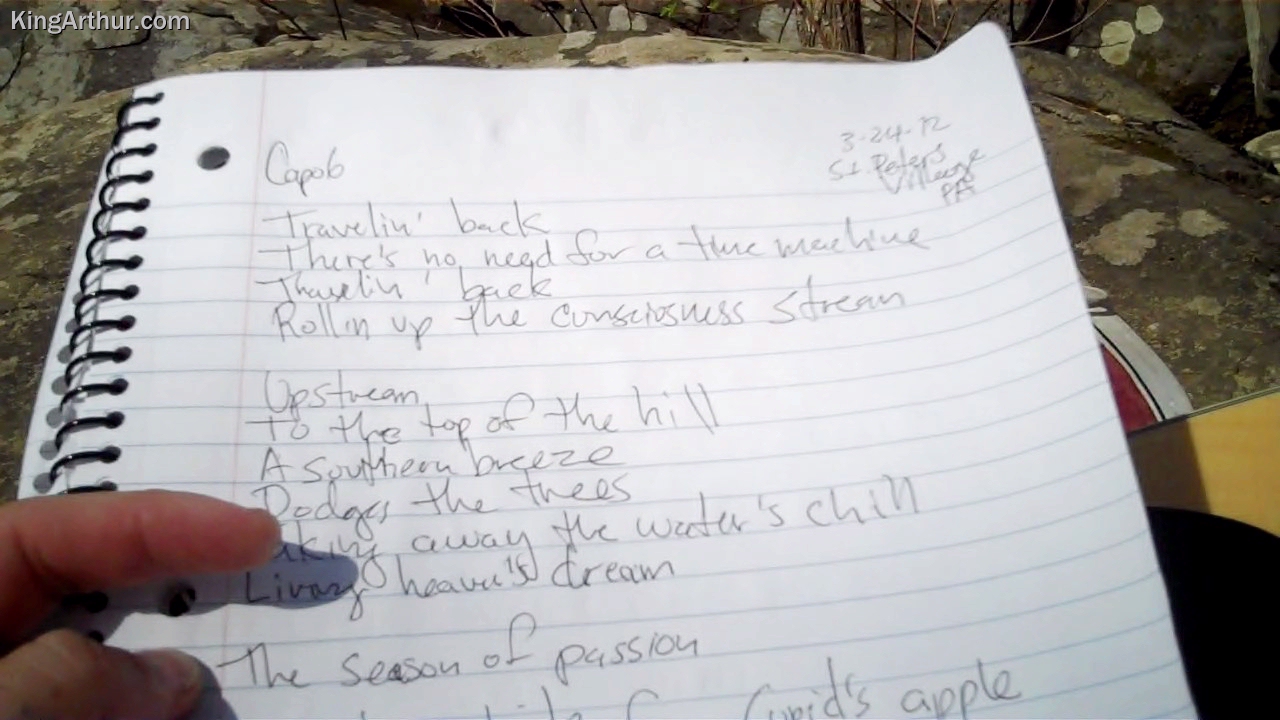 KingArthur.com
3-24-12
St. Peters
Village
PA
Capo6
Travelin' back
There's no need for a time machine
Travelin' back
Rollin up the consciosness stream
Upstream
To the top of the hill
A southern breeze
Dodges the trees
away the water's chill
Living heaven's dream
The season of passion
Cupid's apple